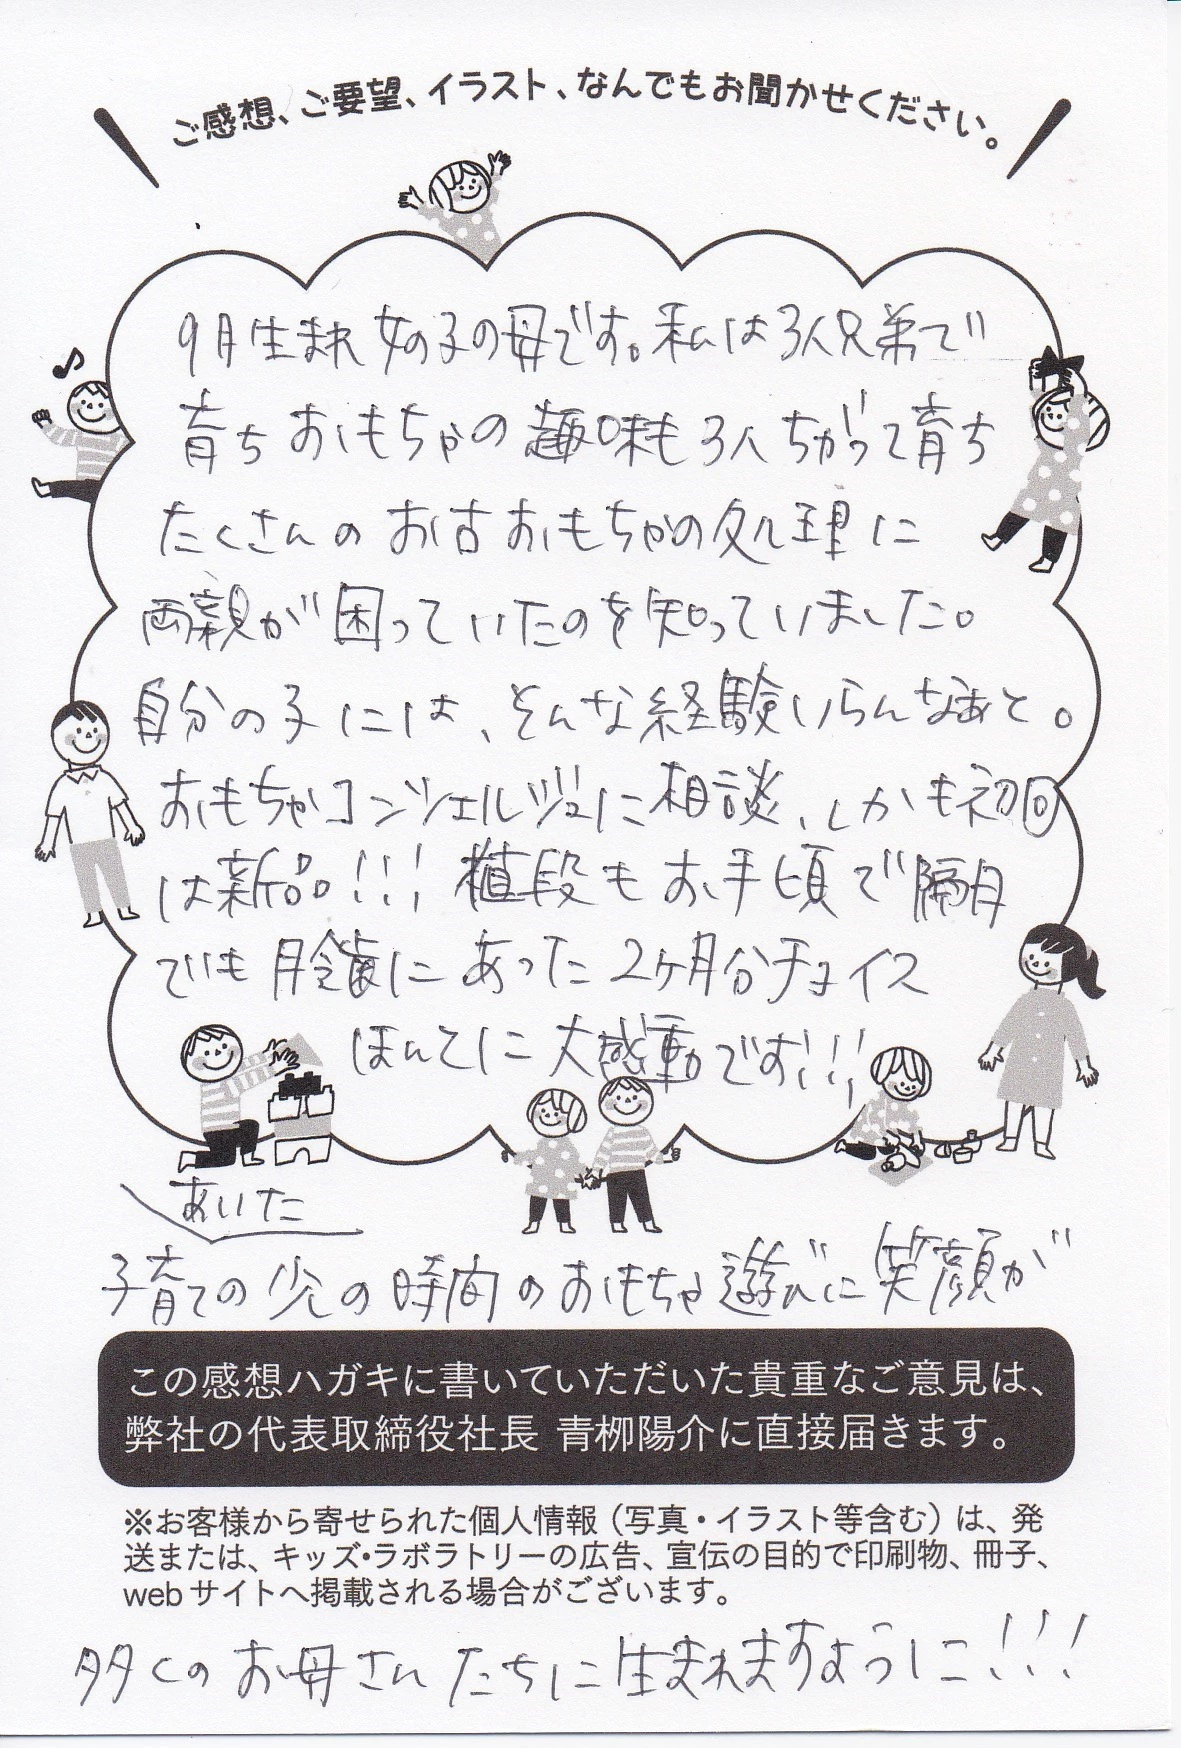 ご感想、ご要望、イラスト、なんでもお聞かせください。
9月生まれ 女の子の母です。私は3人兄弟で
育ち おもちゃの趣味も3人ちがって育ち
たくさんの お古おもちゃの処理に
両親が困っていたのを知っていました。
自分の子には、そんな経験いらんなぁと。
おもちゃコンシェルジュに相談、しかも初回
は新品!!! 値段もお手頃で隔月
でも月齢にあった2ヶ月分チョイス
ほんとに大感動です!!!
あいた
子育ての少しの時間のおもちゃ遊びに笑顔が
この感想ハガキに書いていただいた貴重なご意見は、
弊社の代表取締役社長 青栁陽介に直接届きます。
※お客様から寄せられた個人情報（写真・イラスト等含む）は、発
送または、キッズ・ラボラトリーの広告、宣伝の目的で印刷物、冊子、
webサイトへ掲載される場合がございます。
多くのお母さんたちに生まれますように!!!